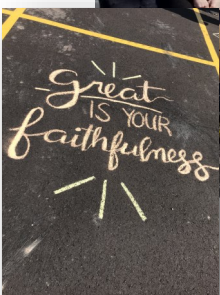 Great
IS YOUR
faithfulness